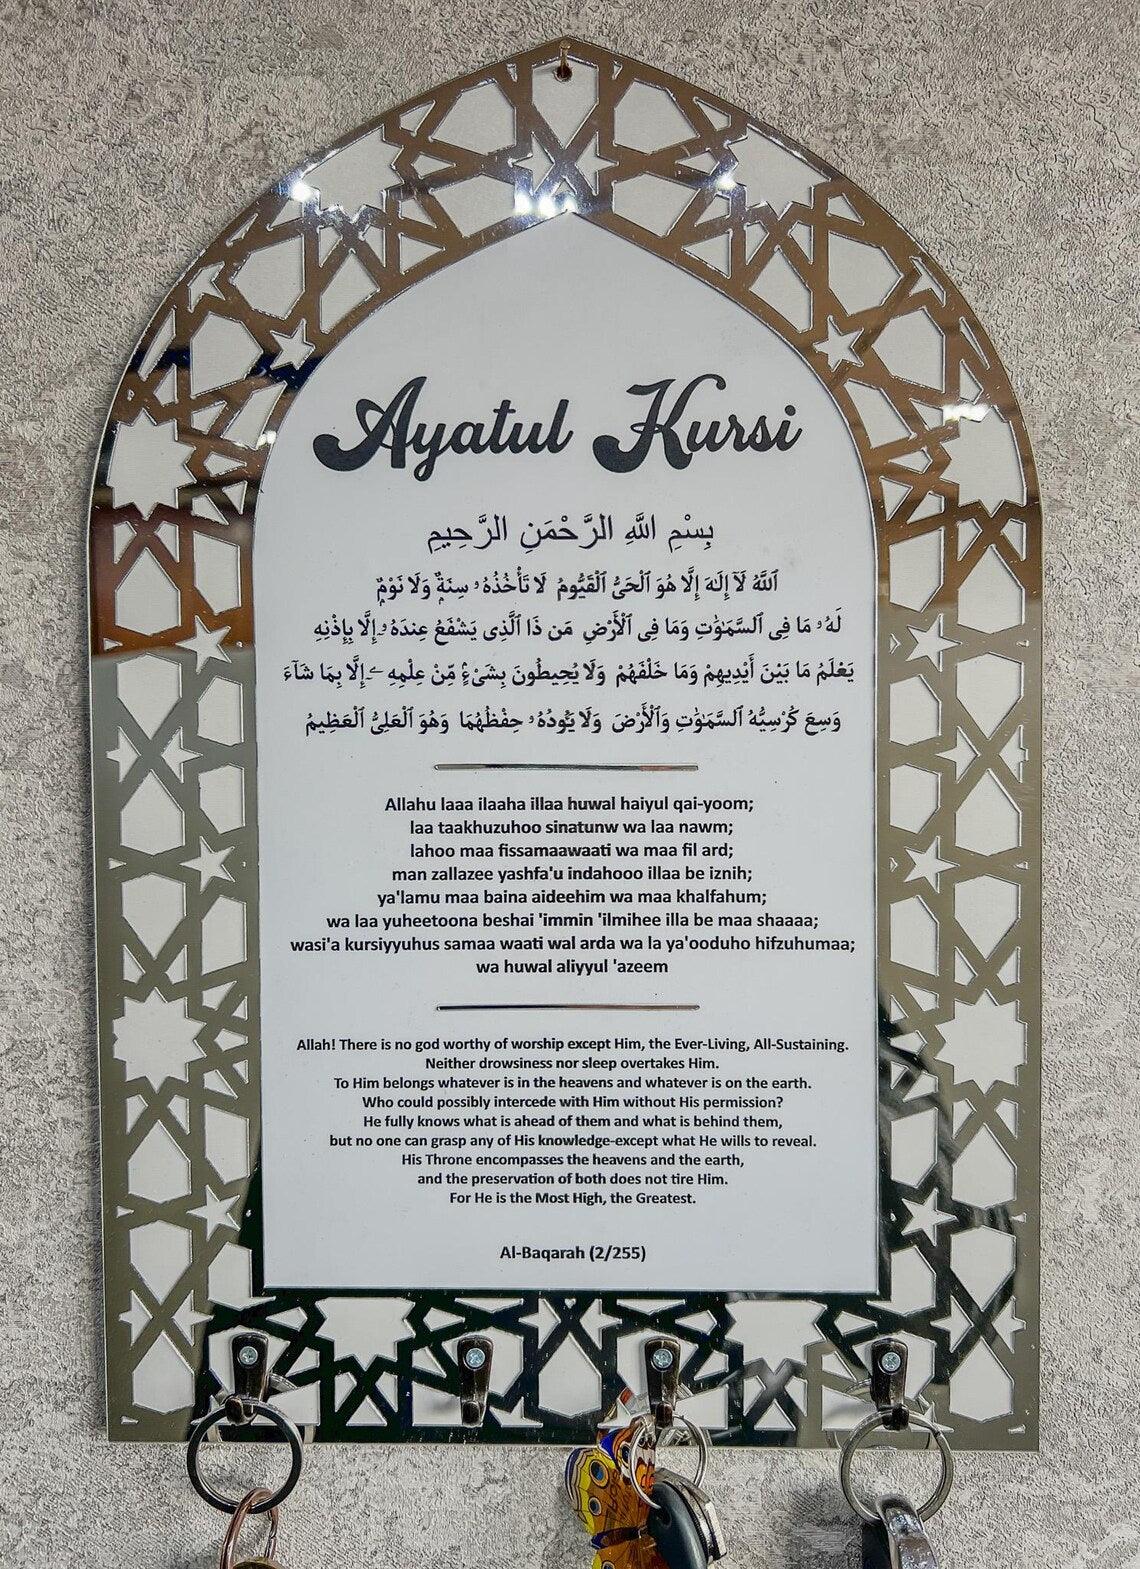 Ayatul Kursi
بِسْمِ اللَّهِ الرَّحْمَنِ الرَّحِيمِ
ٱللَّهُ لَآ إِلَٰهَ إِلَّا هُوَ ٱلْحَىُّ ٱلْقَيُّومُ لَا تَأْخُذُهُۥ سِنَةٌ وَلَا نَوْمٌ
لَهُۥ مَا فِى ٱلسَّمَٰوَٰتِ وَمَا فِى ٱلْأَرْضِ مَن ذَا ٱلَّذِى يَشْفَعُ عِندَهُۥٓ إِلَّا بِإِذْنِهِ
يَعْلَمُ مَا بَيْنَ أَيْدِيهِمْ وَمَا خَلْفَهُمْ وَلَا يُحِيطُونَ بِشَىْءٍ مِّنْ عِلْمِهِۦٓ إِلَّا بِمَا شَآءَ
وَسِعَ كُرْسِيُّهُ ٱلسَّمَٰوَٰتِ وَٱلْأَرْضَ وَلَا يَـُٔودُهُۥ حِفْظُهُمَا وَهُوَ ٱلْعَلِىُّ ٱلْعَظِيمُ
Allahu laaa ilaaha illaa huwal haiyul qai-yoom;
laa taakhuzuhoo sinatunw wa laa nawm;
lahoo maa fissamaawaati wa maa fil ard;
man zallazee yashfa'u indahooo illaa be iznih;
ya'lamu maa baina aideehim wa maa khalfahum;
wa laa yuheetoona beshai 'immin 'ilmihee illa be maa shaaaa;
wasi'a kursiyyuhus samaa waati wal arda wa la ya'ooduho hifzuhumaa;
wa huwal aliyyul 'azeem
Allah! There is no god worthy of worship except Him, the Ever-Living, All-Sustaining.
Neither drowsiness nor sleep overtakes Him.
To Him belongs whatever is in the heavens and whatever is on the earth.
Who could possibly intercede with Him without His permission?
He fully knows what is ahead of them and what is behind them,
but no one can grasp any of His knowledge-except what He wills to reveal.
His Throne encompasses the heavens and the earth,
and the preservation of both does not tire Him.
For He is the Most High, the Greatest.
Al-Baqarah (2/255)